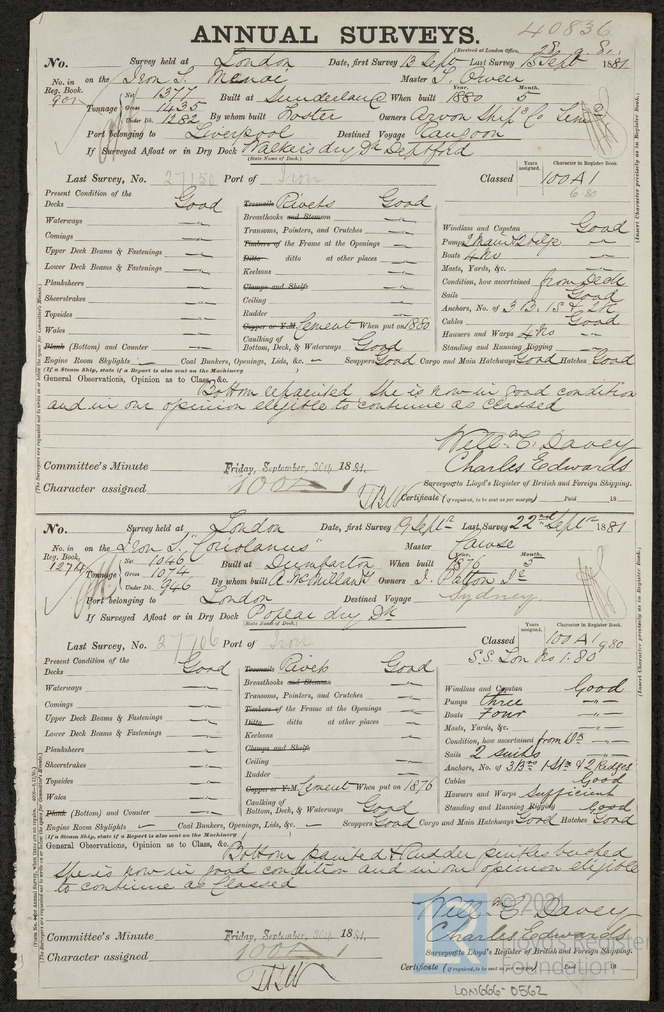 ANNUAL SURVEYS.
40836
(Received at London Office,
No. Survey held at London Date, first Survey 13 Sept Last Survey 13 Sept 1881
No. in on the Iron S. Menai Master Owen
Reg. Book. Year. Month.
Tonnage Net 1377 Built at Sunderland When built 1880 5
Gross 1435
Under Dk. 1282 By whom built Foster Owners Arvon Ship Co
Port belonging to Liverpool Destined Voyage Rangoon
If Surveyed Afloat or in Dry Dock Walkers dry Dk Deptford
(State Name of Dock.)
Years assigned. Character in Register Book.
Last Survey, No. 27150 Port of Iron Classed 100 A1
6 80
Present Condition of the
Decks Good Treenails Rivets Good
Waterways Breasthooks and Stemson
Comings Transoms, Pointers, and Crutches Windlass and Capstan Good
Upper Deck Beams & Fastenings Timbers of the Frame at the Openings Pumps 2 Main & bilge
Lower Deck Beams & Fastenings Ditto ditto at other places Boats 4 No
Planksheers Keelsons Masts, Yards, &c.
Sheerstrakes Clamps and Shelfs Condition, how ascertained from Deck
Topsides Ceiling Sails Good
Wales Rudder Anchors, No. of 3 B. 1 S & 2 K
Plank (Bottom) and Counter Copper or Y.M. Cement When put on 1880 Cables Good
Caulking of Bottom, Deck, & Waterways Good Hawsers and Warps 4 No
Standing and Running Rigging
Engine Room Skylights – Coal Bunkers, Openings, Lids, &c. – Scuppers Good Cargo and Main Hatchways Good Hatches Good
(If a Steam Ship, state if a Report is also sent on the Machinery )
General Observations, Opinion as to Class, &c.
Bottom repainted She is now in good condition
and in our opinion eligible to continue as Classed
Willm C. Davey
Charles Edwards
Committee's Minute Friday, September, 30th 1881.
Surveyors to Lloyd's Register of British and Foreign Shipping.
Character assigned 100 A 1
Certificate (if required, to be sent as per margin) Paid 18
No. Survey held at London Date, first Survey 19 Septr Last Survey 22nd Septr 1881
No. in on the Iron S. "Coriolanus" Master
Reg. Book. Year. Month.
1274 Tonnage Net 1046 Built at Dumbarton When built 1876 5
Gross 1074
Under Dk. 946 By whom built A. McMillan Owners J. Patton Jr
Port belonging to London Destined Voyage Sydney.
If Surveyed Afloat or in Dry Dock Poplar dry Dk
(State Name of Dock.)
Years assigned. Character in Register Book.
Last Survey, No. 27706 Port of Iron Classed 100 A1 9 80
S.S. Lon No 1. 80
Present Condition of the
Decks Good Treenails Rivets Good
Waterways Breasthooks and Stemson Windlass and Capstan Good
Comings Transoms, Pointers, and Crutches Pumps three
Upper Deck Beams & Fastenings Timbers of the Frame at the Openings Boats Four
Lower Deck Beams & Fastenings Ditto ditto at other places Masts, Yards, &c.
Planksheers Keelsons Condition, how ascertained from Dk
Sheerstrakes Clamps and Shelfs Sails 2 suits
Topsides Ceiling Anchors, No. of 3 Br 1 St & 2 Kedges
Wales Rudder Cables Good
Plank (Bottom) and Counter Copper or Y.M. Cement When put on 1876 Hawsers and Warps Sufficient
Caulking of Bottom, Deck, & Waterways Good Standing and Running Rigging Good
Engine Room Skylights – Coal Bunkers, Openings, Lids, &c. – Scuppers Good Cargo and Main Hatchways Good Hatches Good
(If a Steam Ship, state if a Report is also sent on the Machinery )
General Observations, Opinion as to Class, &c.
Bottom painted & Rudder pintles bushed
She is now in good condition and in our opinion eligible
to continue as Classed
Willm C. Davey
Charles Edwards
Committee's Minute Friday, September, 30th 1881.
Surveyors to Lloyd's Register of British and Foreign Shipping.
Character assigned 100 A 1
Certificate (if required, to be sent as per margin) Paid 18
© 2021
Lloyd's Register
Foundation
LON666-0562